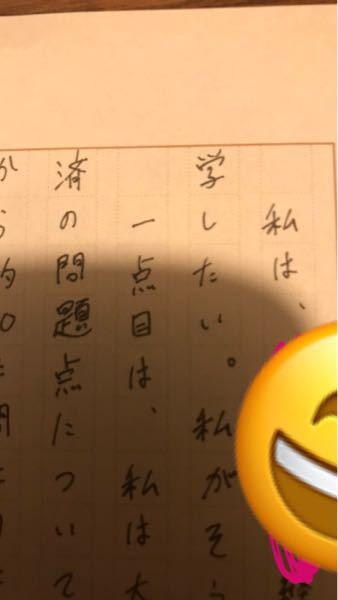 私は、
学したい。私がそう
一点目は、私は大
済の問題点について